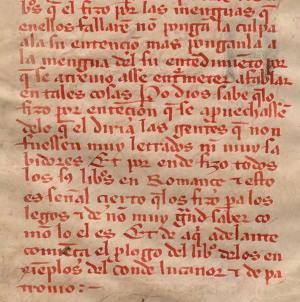 bos q̃ el fizo por las menguas q̃
enellos fallarẽ nõ põgã la culpa
ala su entenciõ mas põganla a
la mengua del su entẽdimieto por
q̃ se atreuio asse entmeter a fablar
en tales cosas Po dios sabe q̃ lo
fizo por entenciõn q̃ se aprouechassẽ
delo q̃ el diria las gentes q̃ non
fuessen muy letrados nĩ muy sa
bidores Et por ende fizo todos
los sus libos en Romançe & esto
es señal cierto q̃ los fizo pa los
legos & de nõ muy gñd saber co
mo lo el es Et de aq̃ adelante
comieça el plogo del libo delos en
xienplos del conde lucanor & de pa
tronio :~